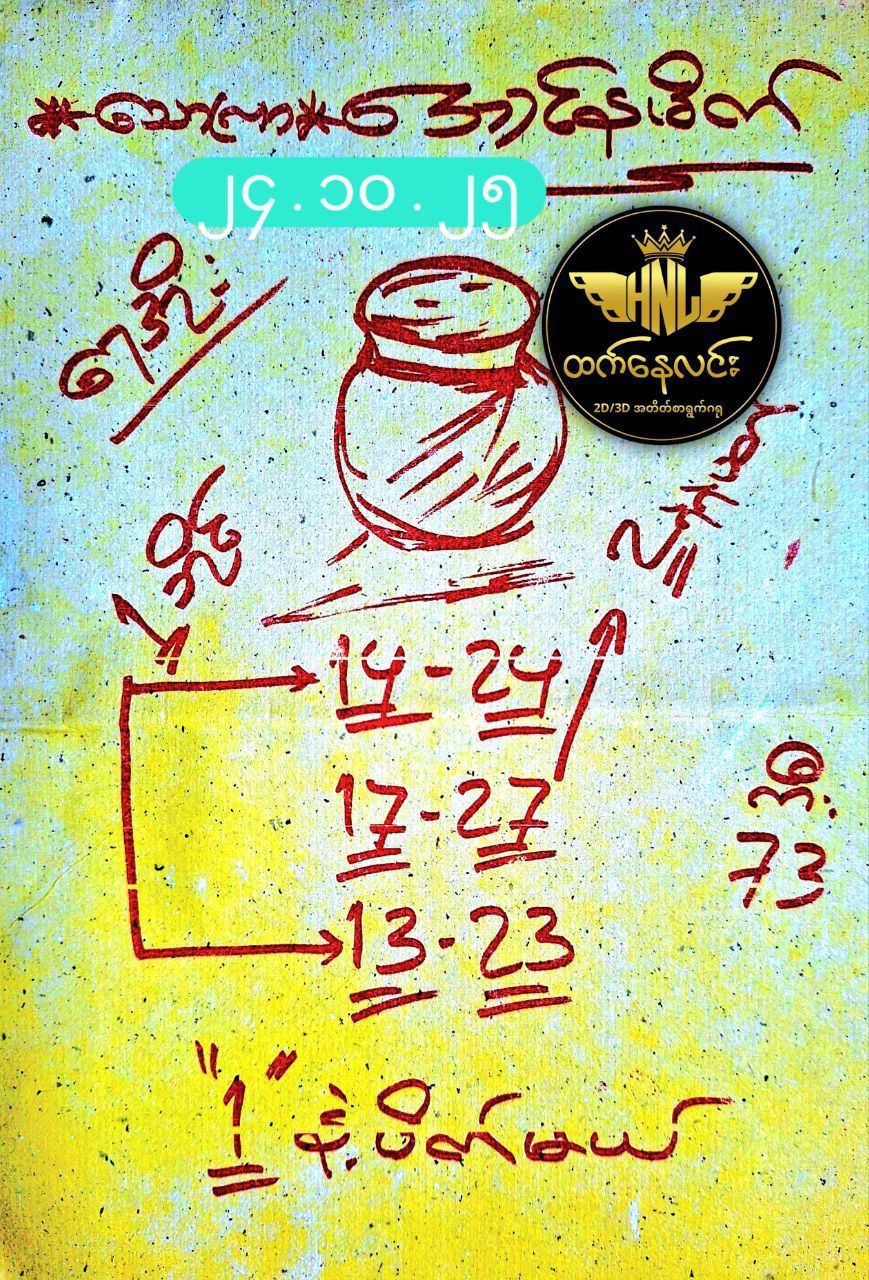 *သောကြာ*အောင်နေ့ခိုက်
၂၄.၁၀.၂၅
ရေအိုး
HNL
ထက်နေလင်း
2D/3D အတိတ်စာရွက်ဂရု
14-24
17-27
13-23
73
"1" နဲ့ပိတ်မယ်